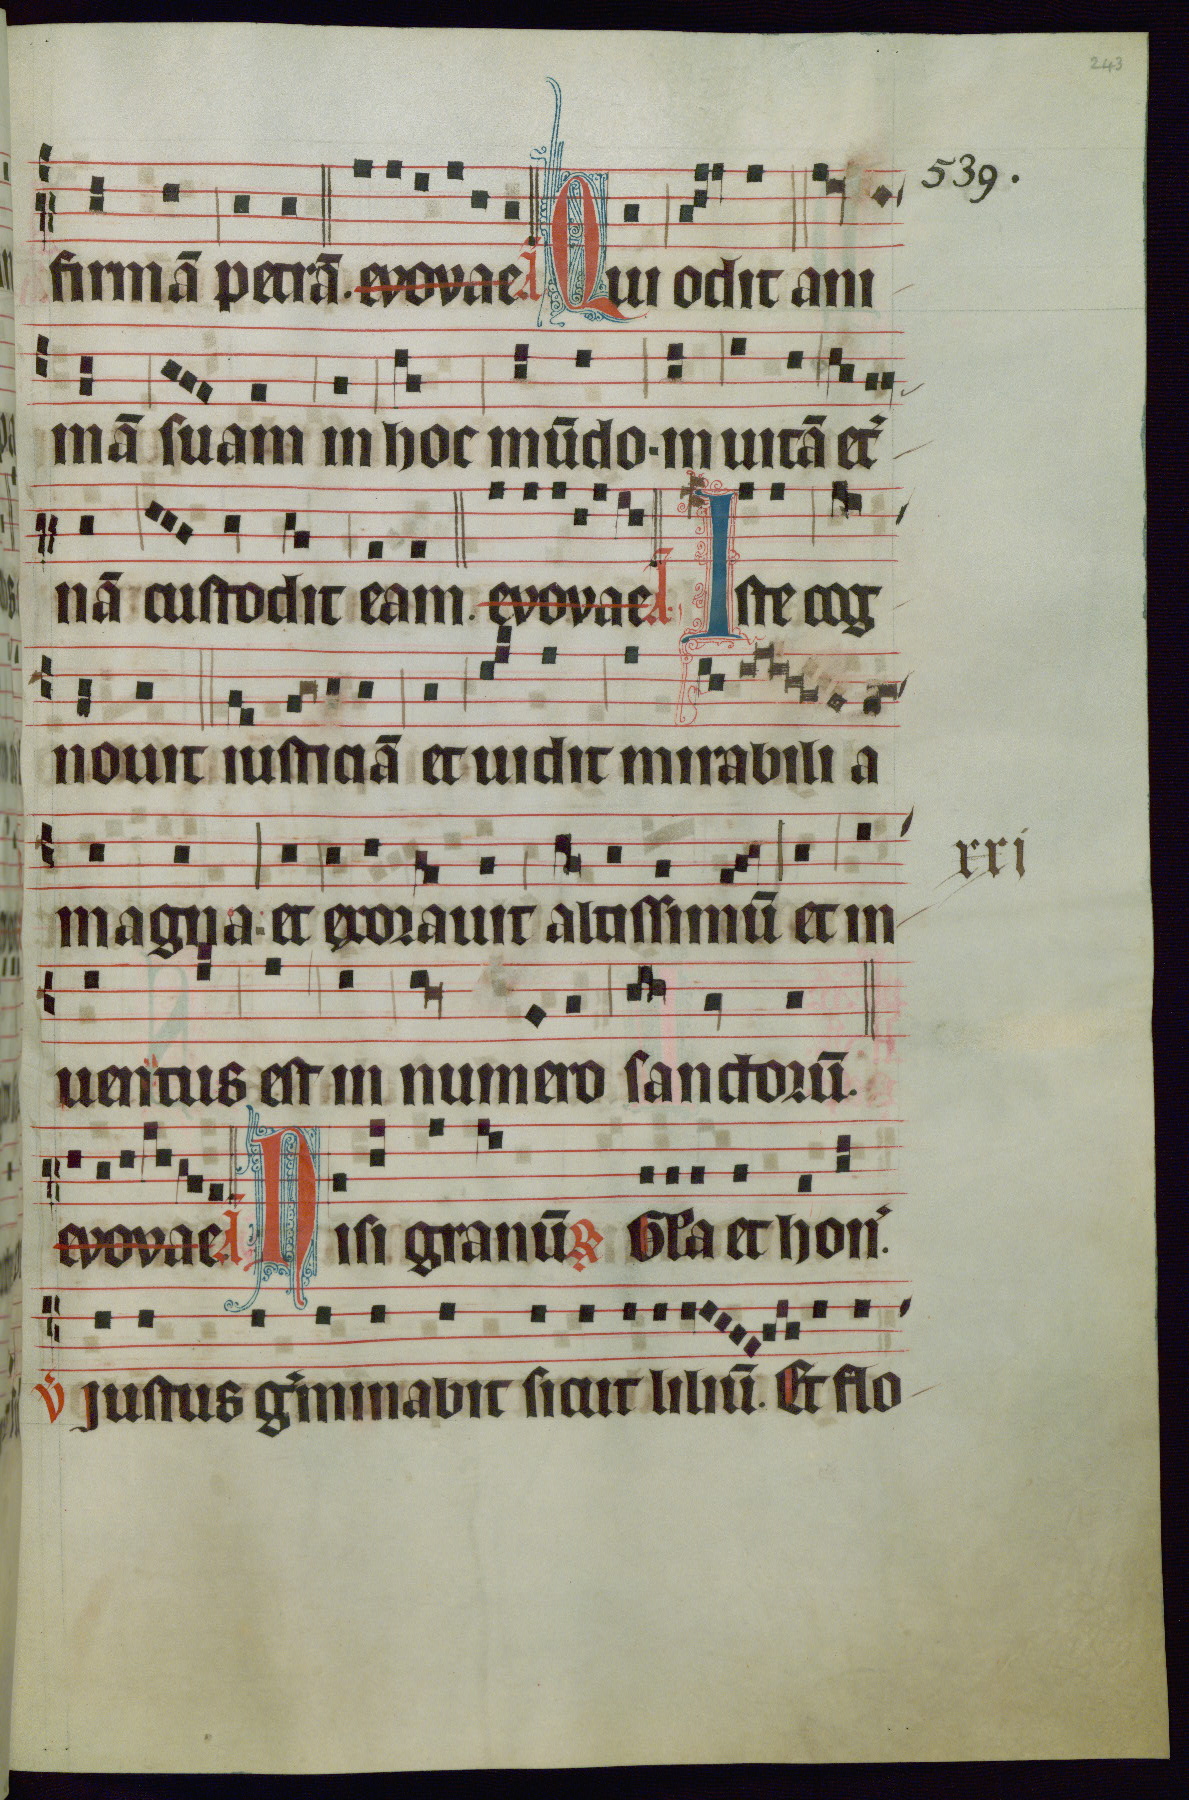 243
539.
firmā petrā. evovae A Qui odit ani
mā suam in hoc mūdo. in uitā et'
nā custodit eam. evovae A Iste cog
nouit iusticiā et uidit mirabili a
magna. et exorauit altissimū et in
xxi
uentus est in numero sanctorū.
evovae A Nisi granū R Gl'a et hon'.
V Justus g'minabit sicut liliū. Et flo